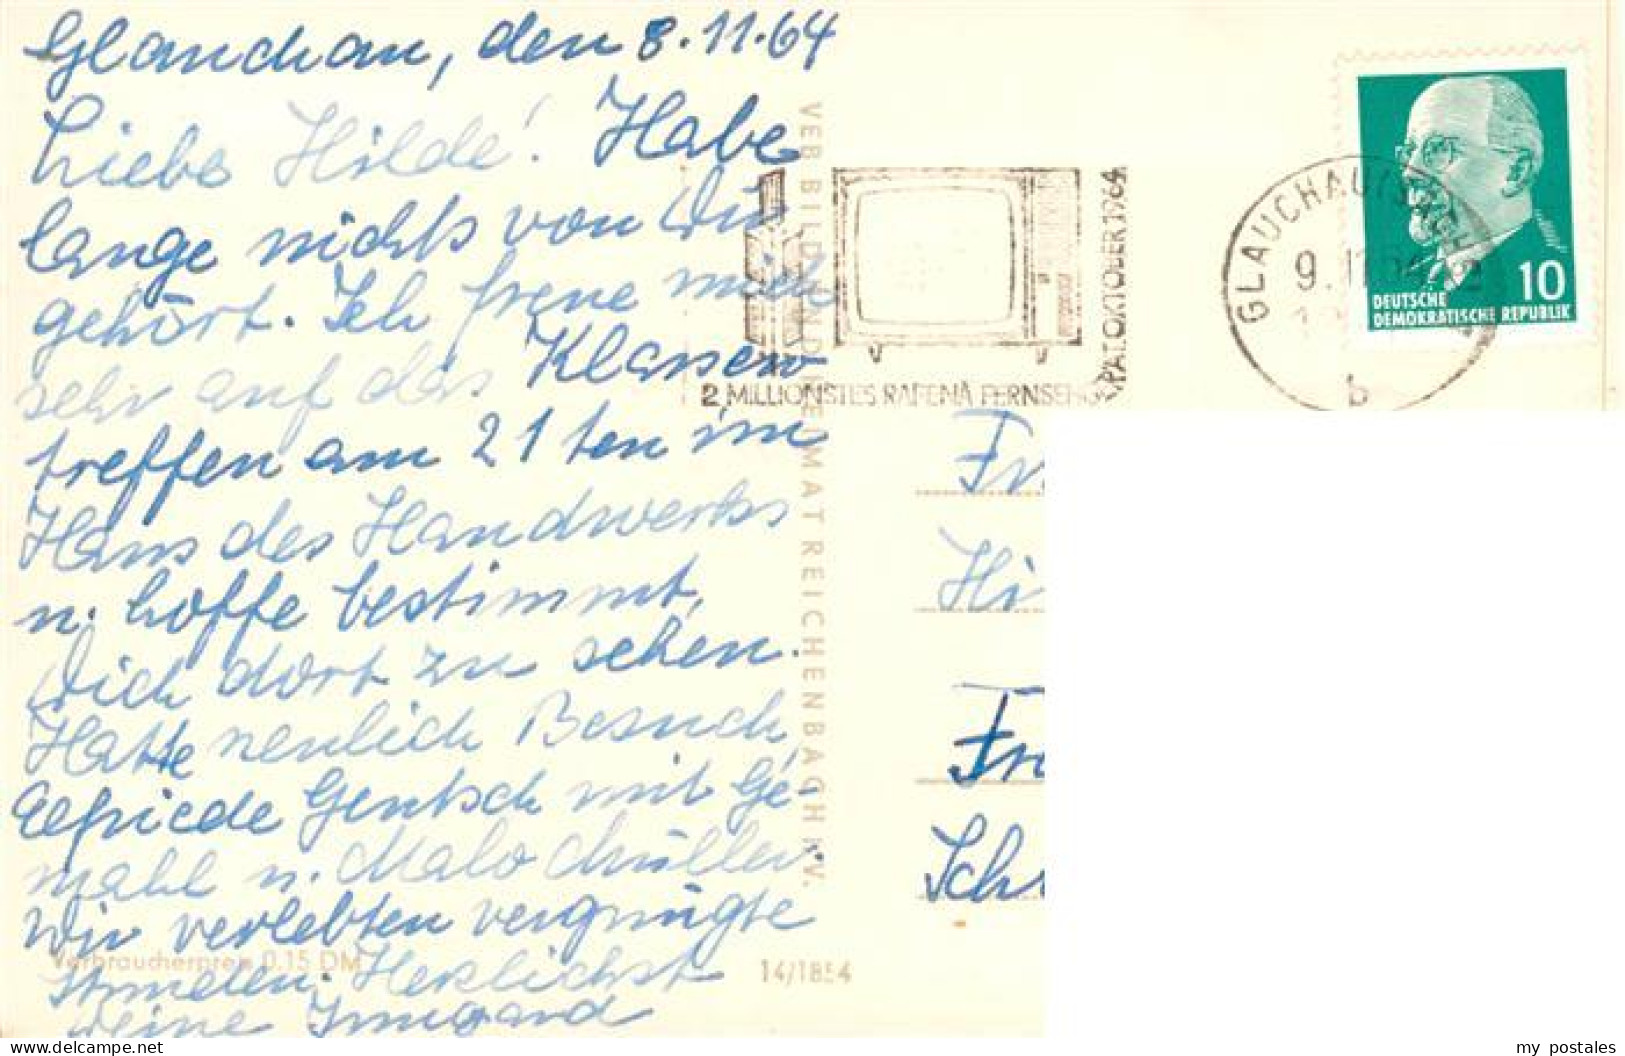 Glauchau, den 8.11.64
Liebe Hilde! Habe
lange nichts von Dir
gehört. Ich freue mich
sehr auf das Klassen-
treffen am 21ten im
Haus des Handwerks
u. hoffe bestimmt,
Dich dort zu sehen.
Hatte neulich Besuch,
Elfriede Gentsch mit Ge-
mahl u.
Wir verlebten vergnügte
Stunden. Herzlichst
Deine Irmgard
Verbraucherpreis 0.15 DM
14/1854
VEB BILD UND HEIMAT REICHENBACH i. V.
2 MILLIONSTES RAFENA FERNSEHG
OKTOBER 1964
GLAUCHAU
9.11.64
b
10
DEUTSCHE
DEMOKRATISCHE REPUBLIK
Fr
Hi
Fr
Sch
my_postales
www.delcampe.net